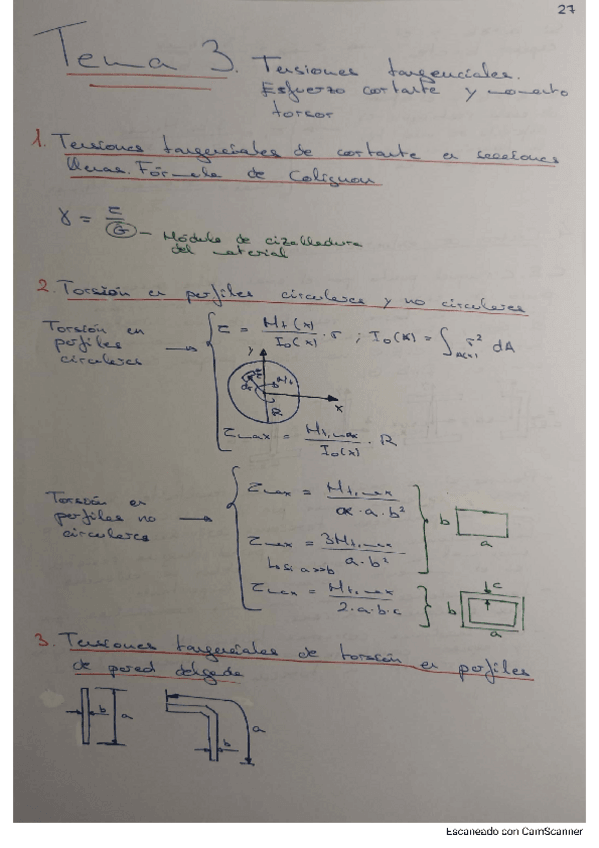 27
Tema 3. Tensiones tangenciales.
Esfuerzo cortante y momento
torsor
1. Tensiones tangenciales de cortante en secciones
llenas. Fórmula de Colignon
γ = τ / G — Módulo de cizalladura
del material
2. Torsión en perfiles circulares y no circulares
Torsión en
perfiles
circulares
→ τ = Mt(x) / I₀(x) · r ; I₀(x) = ∫A(x) r² dA
y
Mt
R
x
τmax = Mt,max / I₀(x) · R
Torsión en
perfiles no
circulares
→ τmax = Mt,max / α·a·b²
b
a
τmax = 3Mt,max / a·b²
↳ si a>>b
τmax = Mt,max / 2·a·b·c
c
b
a
3. Tensiones tangenciales de torsión en perfiles
de pared delgada
b
a
b
a
Escaneado con CamScanner